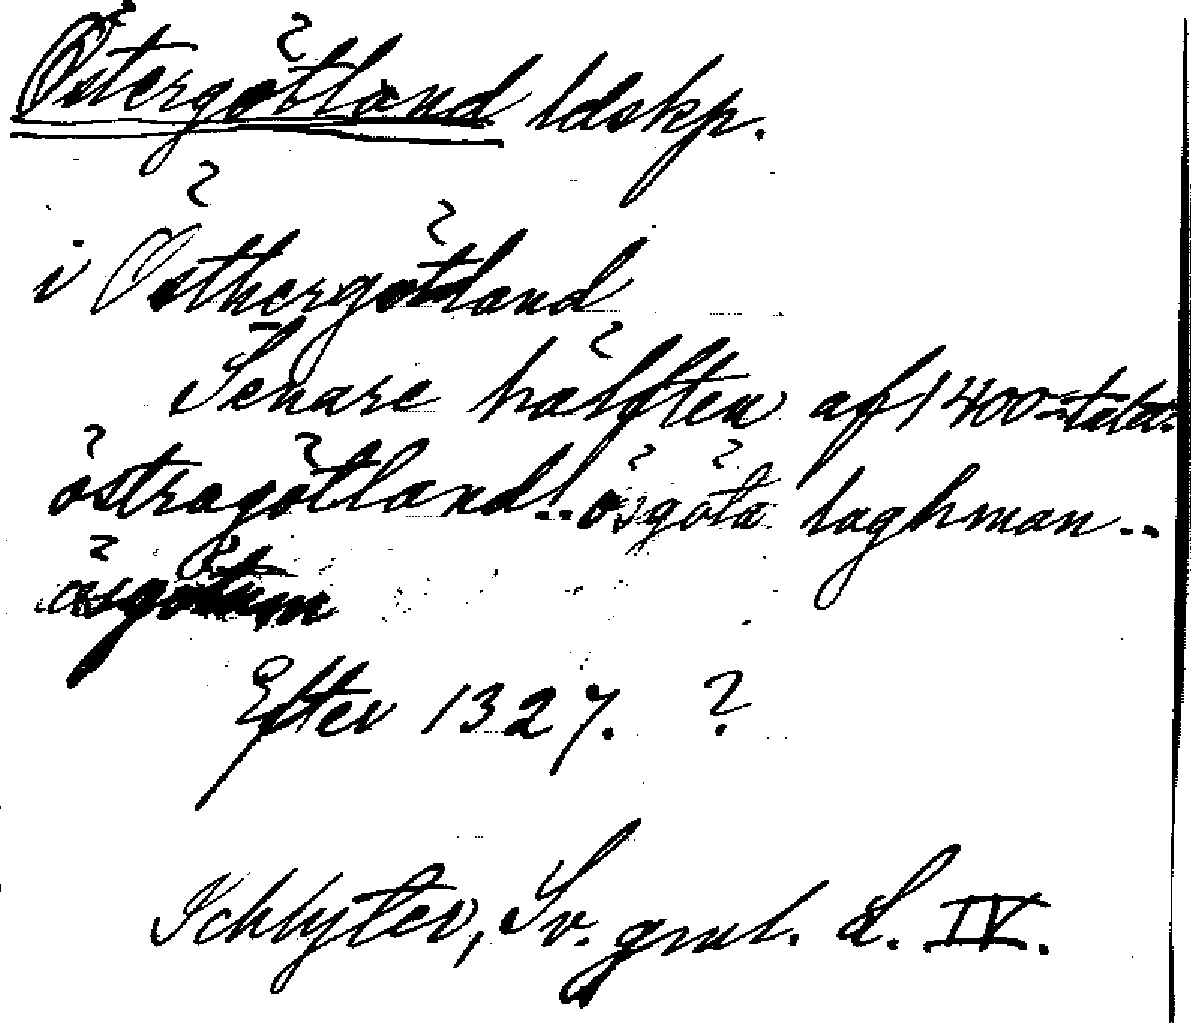 Östergötland ldskp.
i Östhergötland
Senare hälften af 1400-talet.
östragötland.. ösgöta laghman..
ösgötum
Efter 1327. ?
Schlyter, Sv. gml. L. IV.